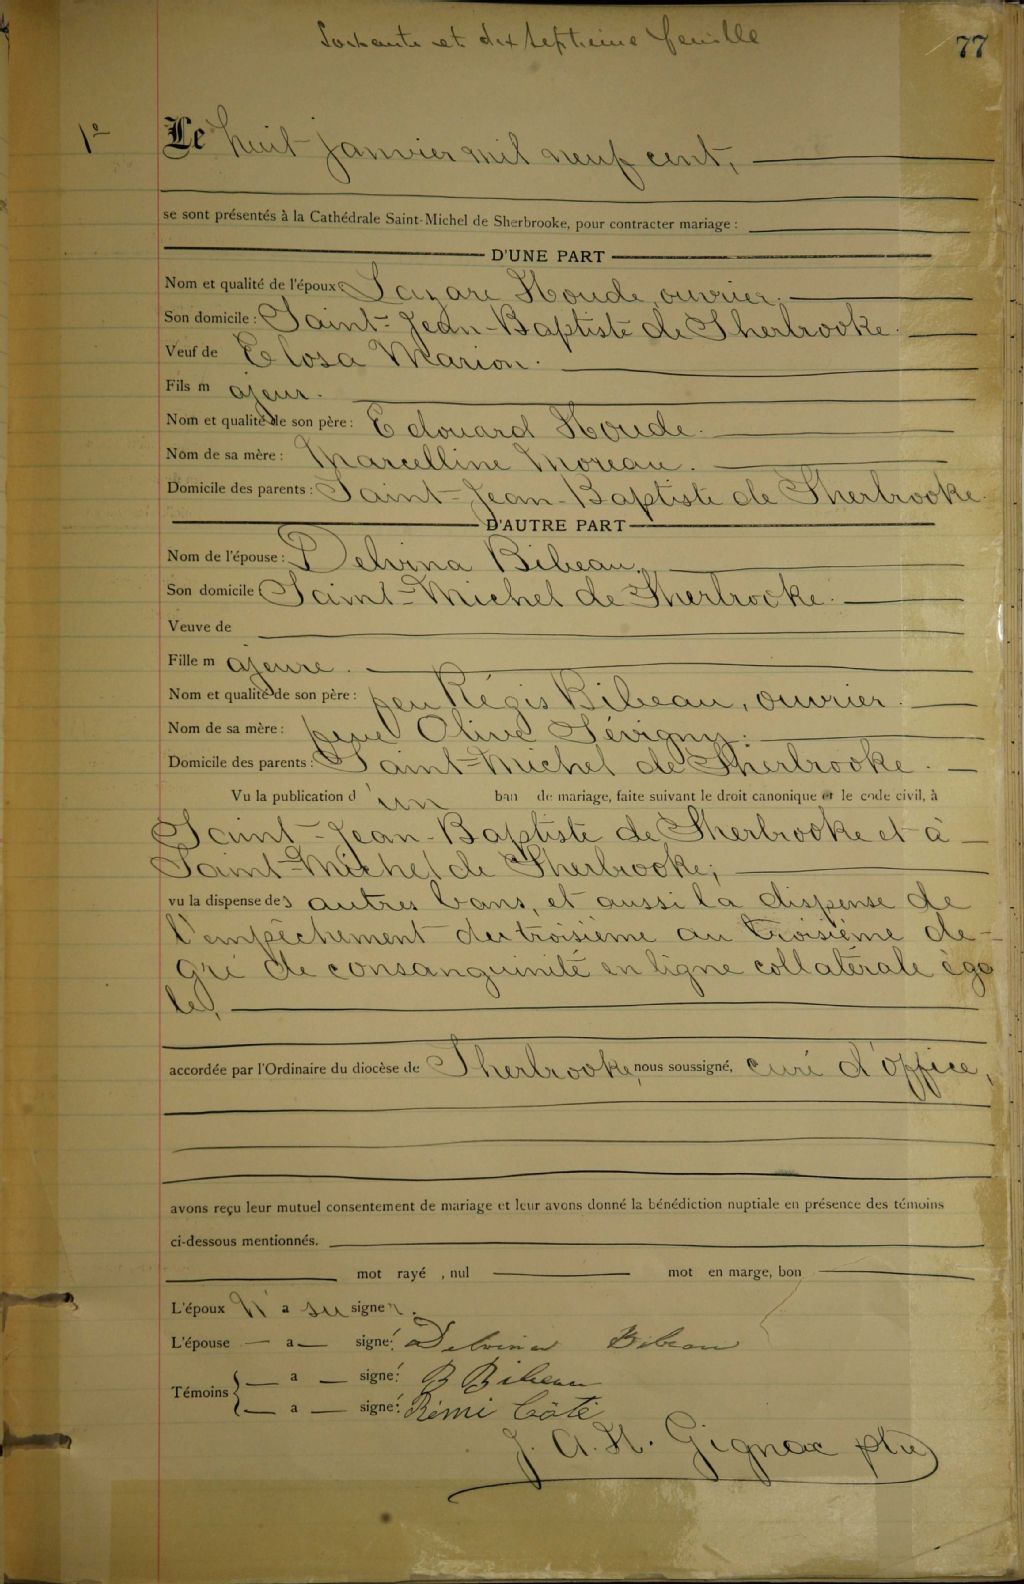 Soixante et dix septième feuille
77
1º
Le huit janvier mil neuf cent,
se sont présentés à la Cathédrale Saint-Michel de Sherbrooke, pour contracter mariage :
D'UNE PART
Nom et qualité de l'époux Lazare Houde, ouvrier.
Son domicile : Saint-Jean-Baptiste de Sherbrooke.
Veuf de Elosa Marion.
Fils m ajeur.
Nom et qualité de son père : Edouard Houde.
Nom de sa mère : Marcelline Moreau.
Domicile des parents : Saint-Jean-Baptiste de Sherbrooke.
D'AUTRE PART
Nom de l'épouse : Delvina Bibeau,
Son domicile Saint-Michel de Sherbrooke.
Veuve de
Fille m ajeure.
Nom et qualité de son père : feu Régis Bibeau, ouvrier.
Nom de sa mère : feue Olive Sévigny.
Domicile des parents : Saint-Michel de Sherbrooke.
Vu la publication d 'un ban de mariage, faite suivant le droit canonique et le code civil, à
Saint-Jean-Baptiste de Sherbrooke et à
Saint-Michel de Sherbrooke;
vu la dispense des autres bans, et aussi la dispense de
l'empêchement du troisième au troisième de-
gré de consanguinité en ligne collatérale éga
le,
accordée par l'Ordinaire du diocèse de Sherbrooke, nous soussigné, curé d'office,
avons reçu leur mutuel consentement de mariage et leur avons donné la bénédiction nuptiale en présence des témoins
ci-dessous mentionnés.
mot rayé , nul mot en marge, bon
L'époux N' a su signer.
L'épouse — a — signé: Delvina Bibeau
Témoins { — a — signé: B Bibeau
— a — signé: Rémi Côté
J. A. H. Gignac ptre